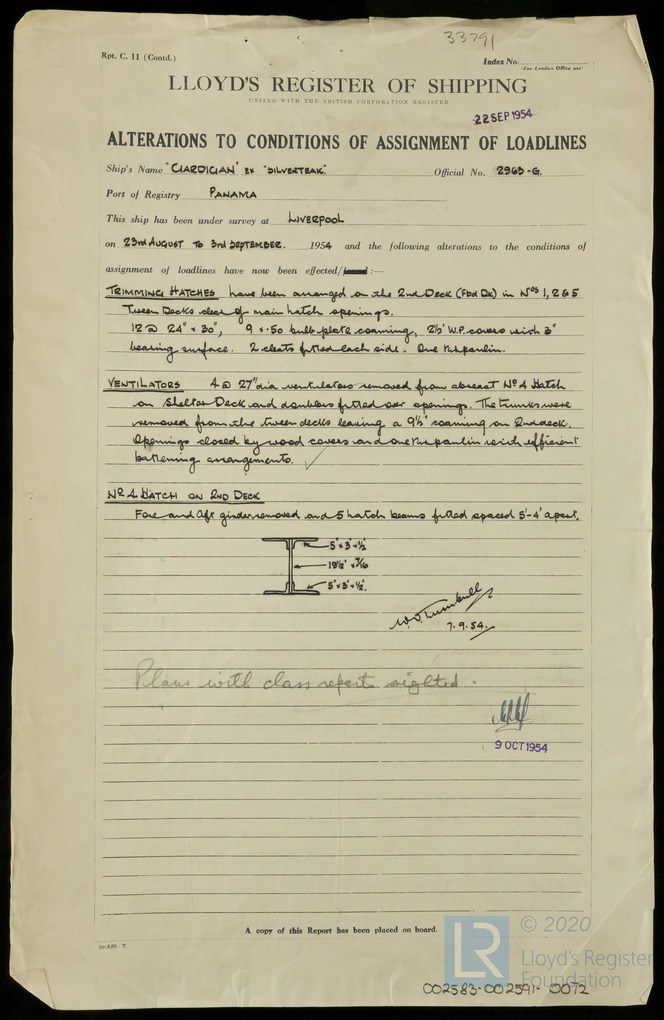 33791
Rpt. C. 11 (Contd.)
Index No.
(For London Office use)
LLOYD'S REGISTER OF SHIPPING
UNITED WITH THE BRITISH CORPORATION REGISTER
22 SEP 1954
ALTERATIONS TO CONDITIONS OF ASSIGNMENT OF LOADLINES
Ship's Name "CIARDIGIAN" EX "SILVERTEAK." Official No. 2963-G.
Port of Registry PANAMA
This ship has been under survey at LIVERPOOL
on 23rd AUGUST TO 3rd SEPTEMBER. 1954 and the following alterations to the conditions of
assignment of loadlines have now been effected/
TRIMMING HATCHES have been arranged on the 2nd Deck (Fbd Dk) in Nos 1, 2 & 5
Tween Decks clear of main hatch openings.
12 @ 24" x 30", 9 x .50 bulb plate coaming, 2½" W.P. covers with 3"
bearing surface. 2 cleats fitted each side. One tarpaulin.
VENTILATORS 4 @ 27" dia ventilators removed from abreast No 4 Hatch
on Shelter Deck and doublers fitted over openings. The trunks were
removed from the tween decks leaving a 9½" coaming on 2nd deck.
Openings closed by wood covers and one tarpaulin with efficient
battening arrangements. ✓
No 4 HATCH ON 2ND DECK
Fore and Aft girder removed and 5 hatch beams fitted spaced 5'-4" apart.
5" x 3" x ½"
19½" x 7/16
5" x 3" x ½".
W. Turnbull
7.9.54.
Plans with class reports sighted.
9 OCT 1954
A copy of this Report has been placed on board.
LR
© 2020
Lloyd's Register
Foundation
002583-002591-0072